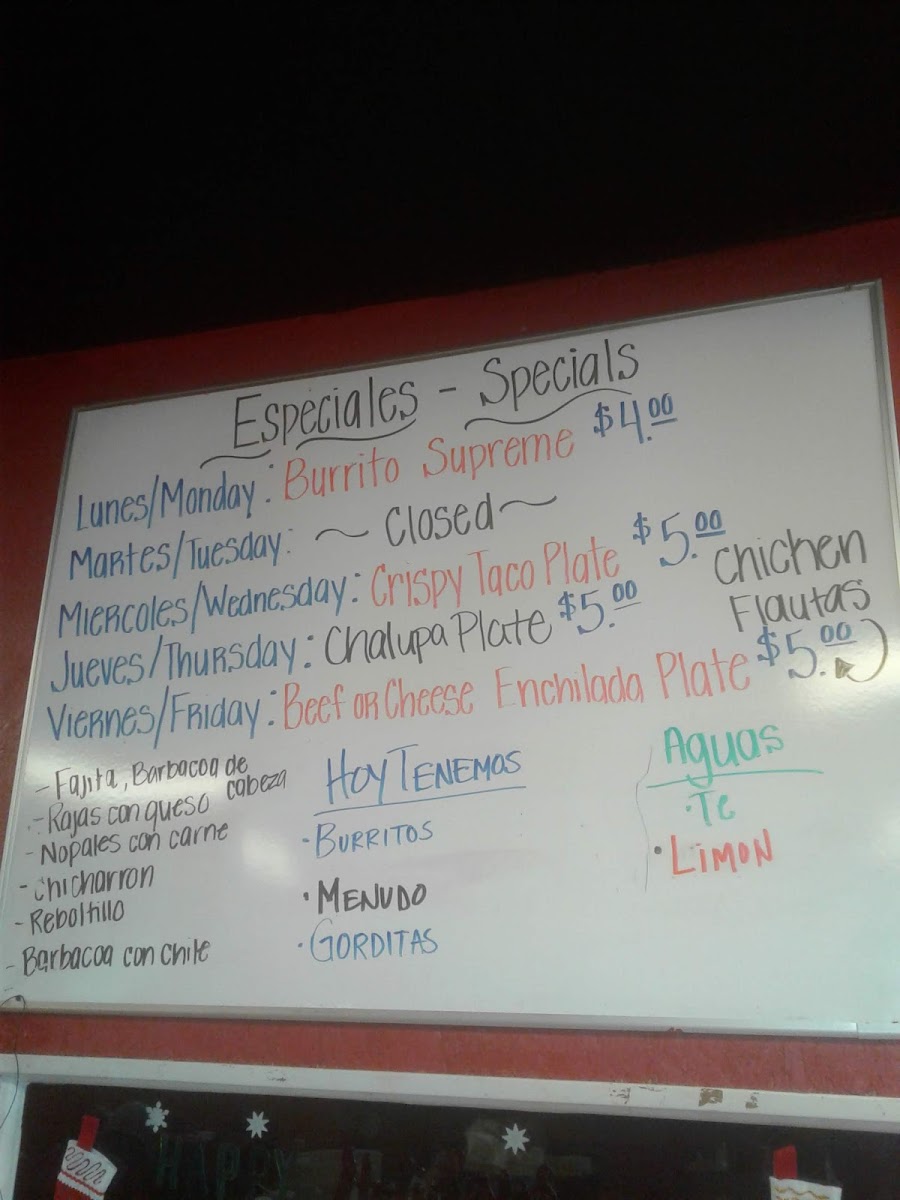 Especiales - Specials
Lunes/Monday: Burrito Supreme $4.00
Martes/Tuesday: ~ Closed ~
Miercoles/Wednesday: Crispy Taco Plate $5.00
Jueves/Thursday: Chalupa Plate $5.00
Chicken
Flautas
Viernes/Friday: Beef or Cheese Enchilada Plate $5.00
- Fajita, Barbacoa de
cabeza
- Rajas con queso
- Nopales con carne
- Chicharron
- Reboltillo
- Barbacoa con chile
Hoy Tenemos
· Burritos
· Menudo
· Gorditas
Aguas
· Te
· Limon
HAPPY